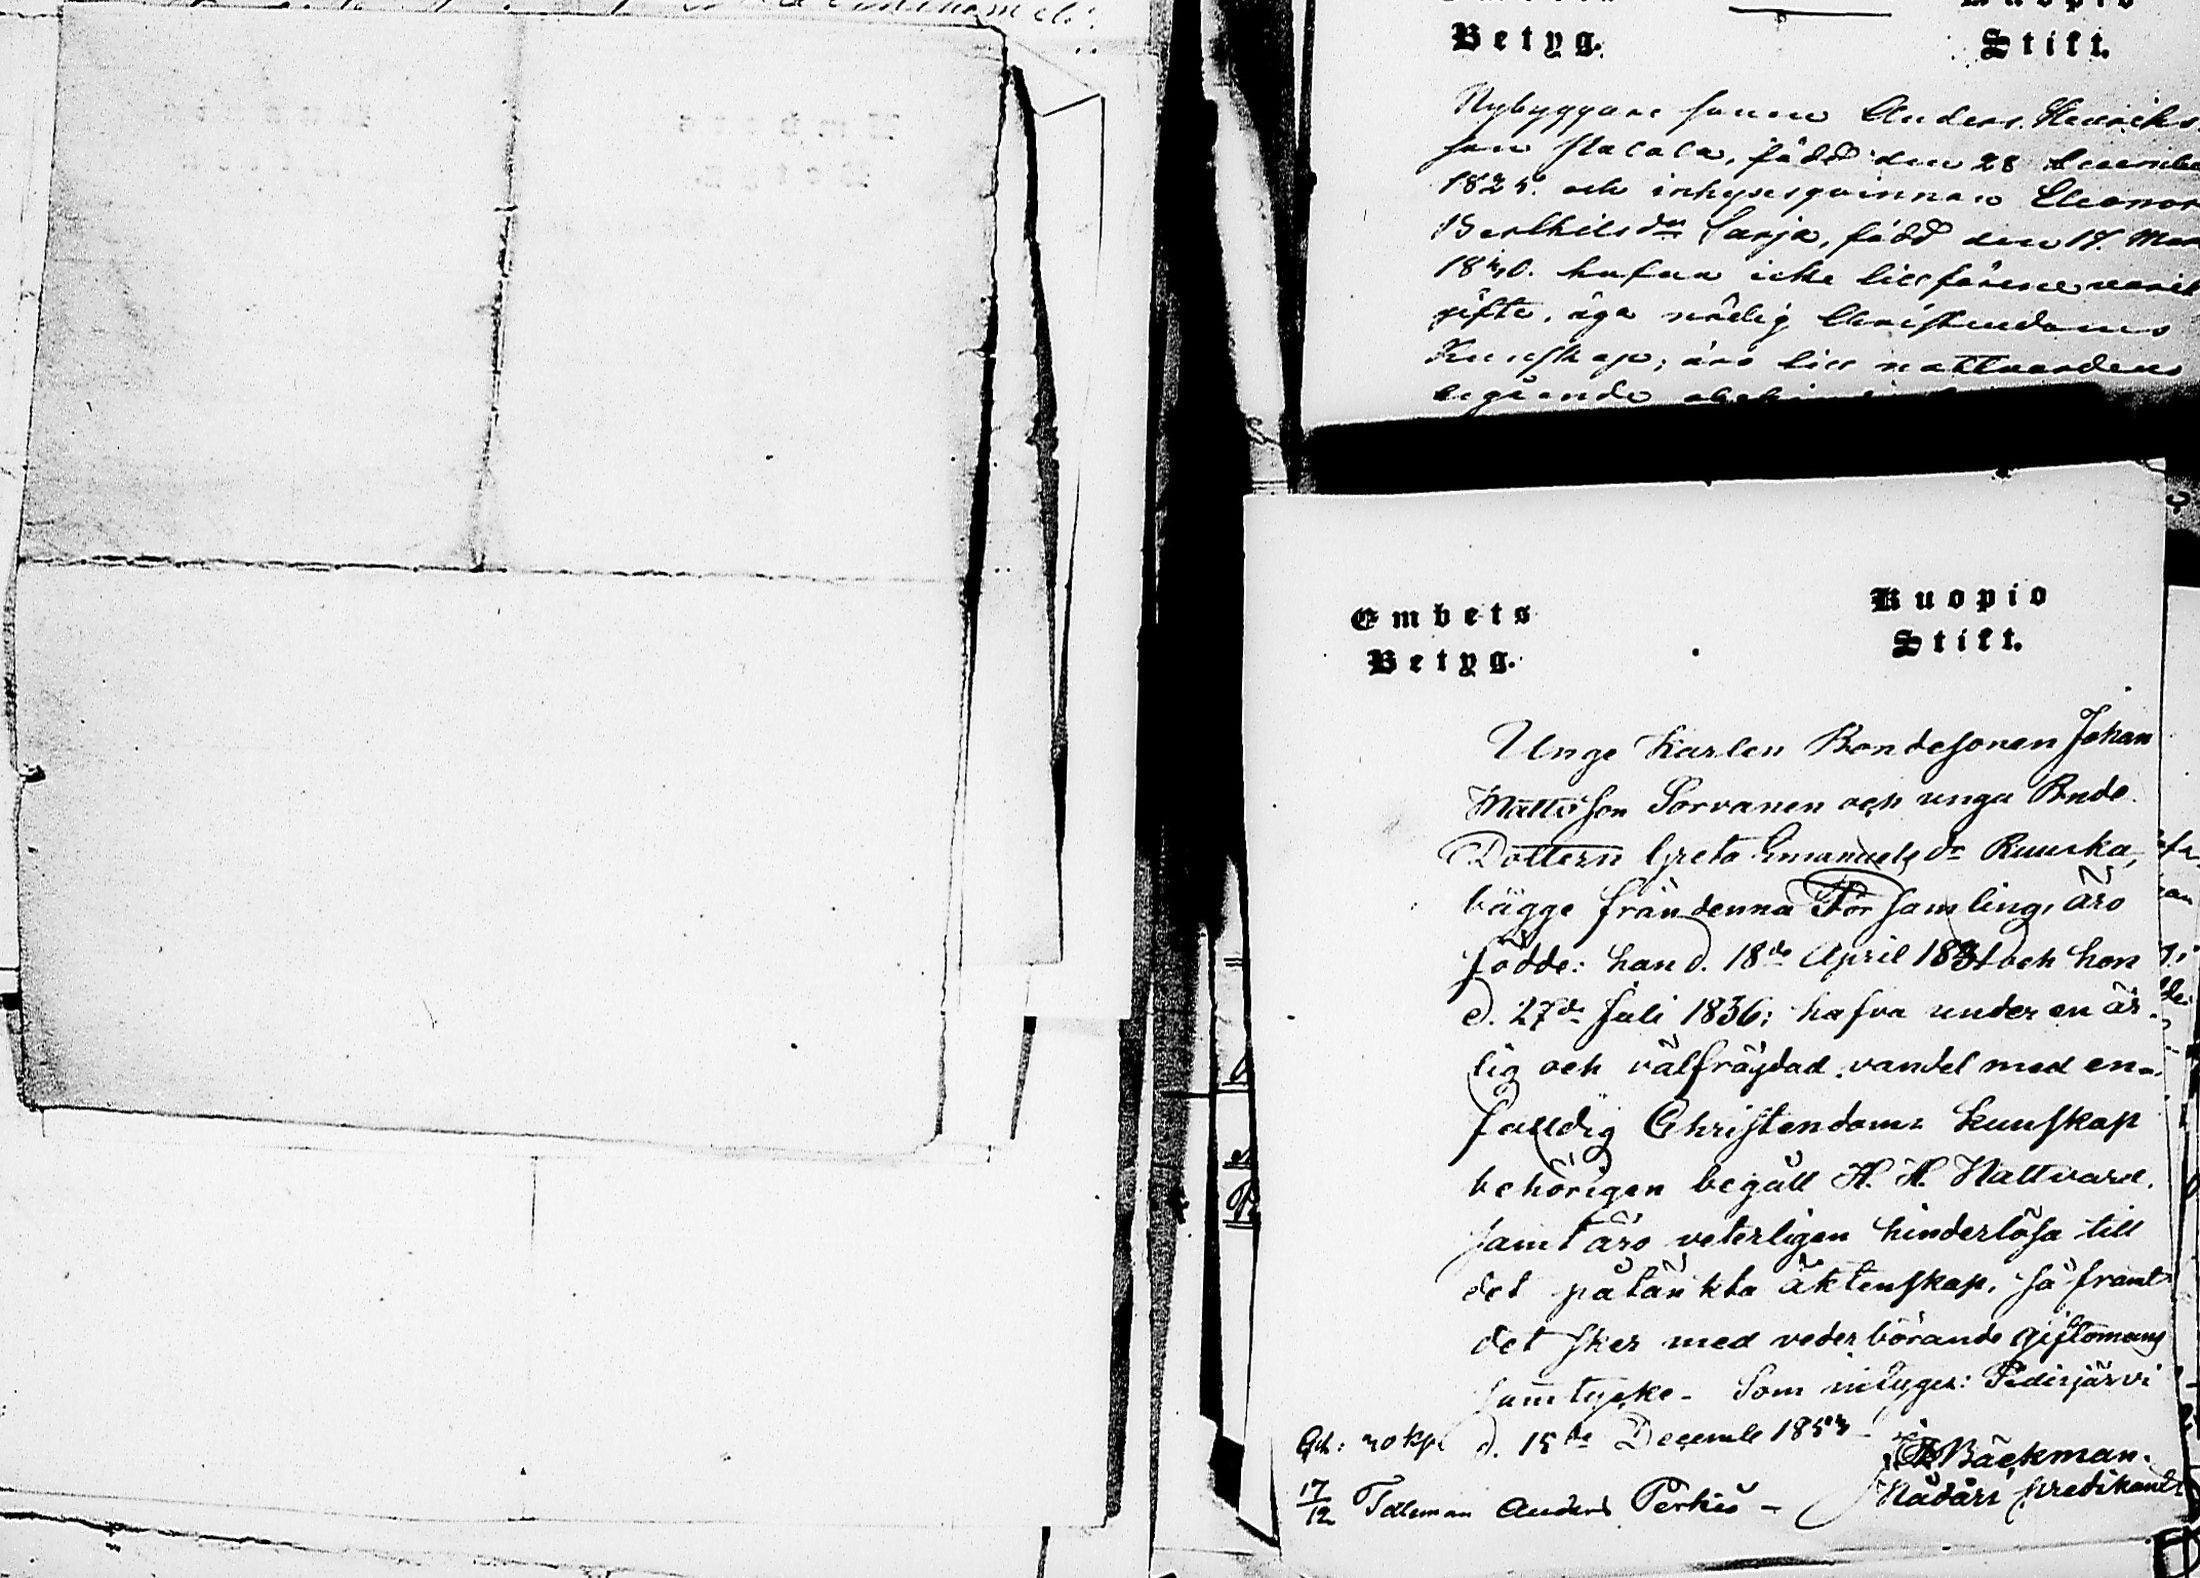 Betyg.
Stift.
Nybyggare sonen Anders Henriks
son
född den 28
och inhysesqvinnan Eleonor
född den 17. Mar
hafva icke tillförene varit
gifte, äga nödig Christendoms
Kunskap; äro till nattvardens
begående
Embets
Betyg.
Kuopio
Stift.
Unge Karlen Bondesonen Johan
Mattsson Sorvanen och unga Bnde
Dottern Greta Emanuels dr Ruuska,
bägge från denna Församling, äro
födde: han d. 18de April 1831 och hon
d. 27de Juli 1836; hafva under en är-
lig och välfrägdad vandel med en-
falldig Christendoms kunskap
behörigen begått H. H. Nattvard,
samt äro veterligen hinderlösa till
det påtänkta äktenskap, så framt
det sker med vederbörande giftomans
samtycke. Som intygar: Pidisjärvi
d. 15de Decemb 185
Bäckman.
Nådårs predikant
17/12 Tolkman Anders